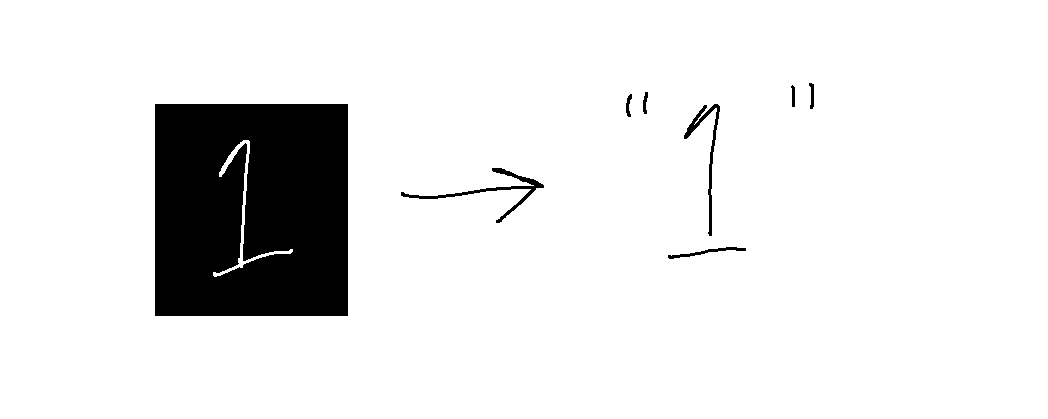 1 → "1"